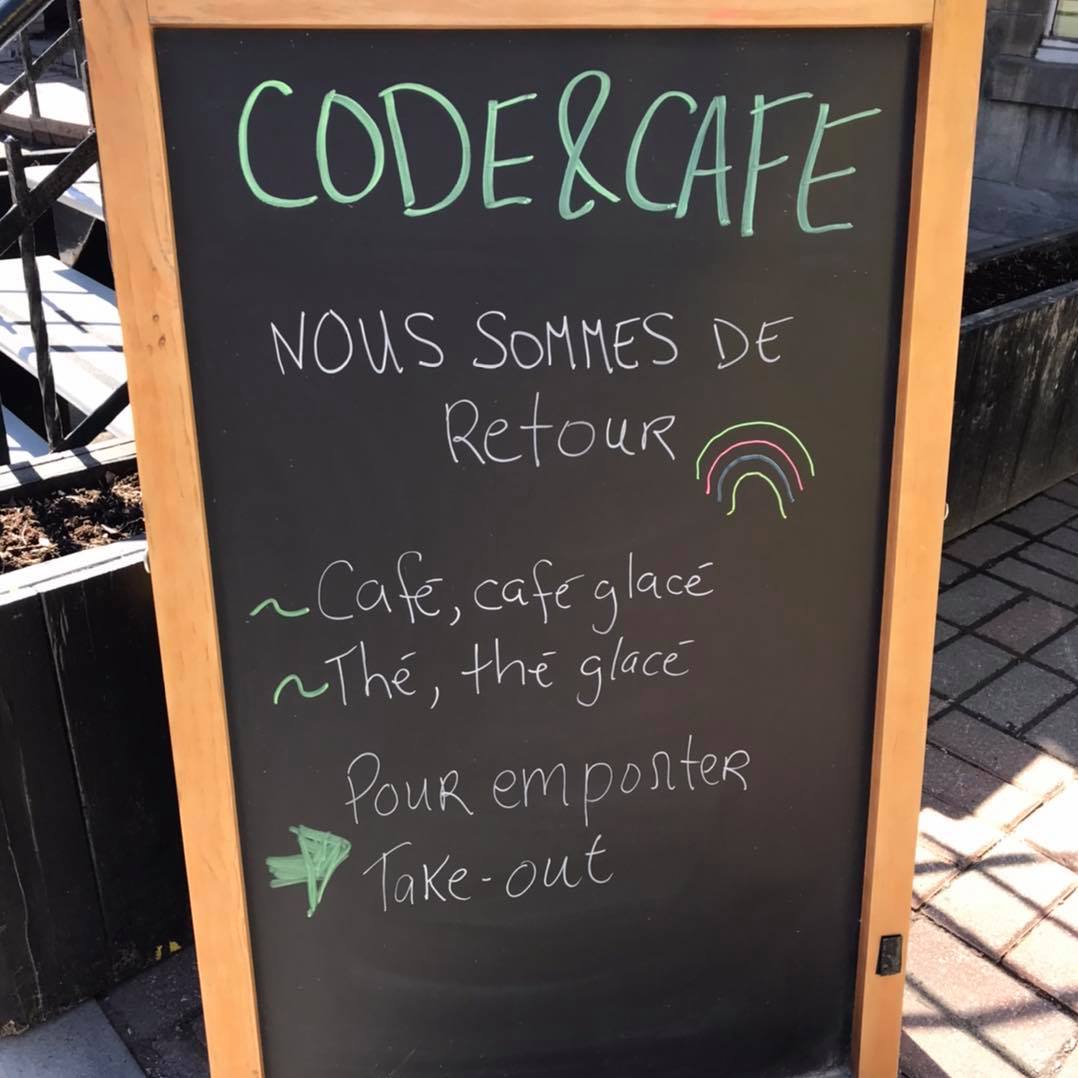 CODE&CAFE
NOUS SOMMES DE
RetouR
~Café, café glacé
~Thé, thé glacé
PouR emporteR
Take-out